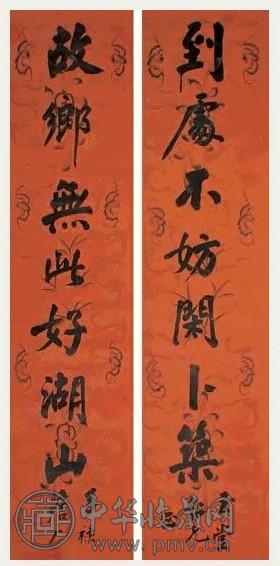 到處不妨閑卜築
故鄉無此好湖山
中华收藏网
www.pmv.cn